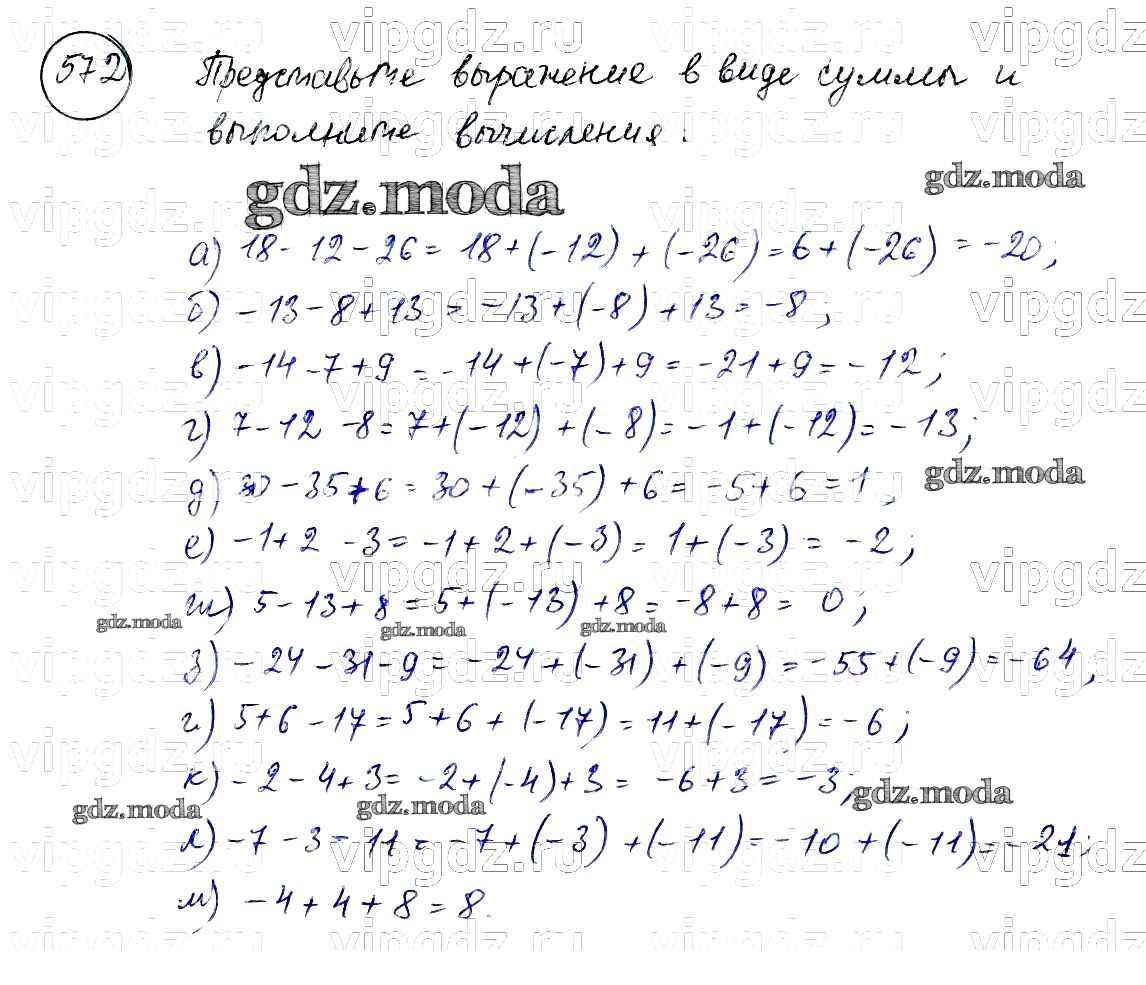 572 Представьте выражение в виде суммы и
выполните вычисления.
gdz.moda
gdz.moda
а) 18-12-26=18+(-12)+(-26)=6+(-26)=-20;
б) -13-8+13=-13+(-8)+13=-8;
в) -14-7+9=-14+(-7)+9=-21+9=-12;
г) 7-12-8=7+(-12)+(-8)=-1+(-12)=-13;
gdz.moda
д) 30-35+6=30+(-35)+6=-5+6=1;
е) -1+2-3=-1+2+(-3)=1+(-3)=-2;
ж) 5-13+8=5+(-13)+8=-8+8=0;
gdz.moda
gdz.moda
gdz.moda
з) -24-31-9=-24+(-31)+(-9)=-55+(-9)=-64;
и) 5+6-17=5+6+(-17)=11+(-17)=-6;
к) -2-4+3=-2+(-4)+3=-6+3=-3;
gdz.moda
gdz.moda
gdz.moda
л) -7-3-11=-7+(-3)+(-11)=-10+(-11)=-21;
м) -4+4+8=8.
vipgdz.ru